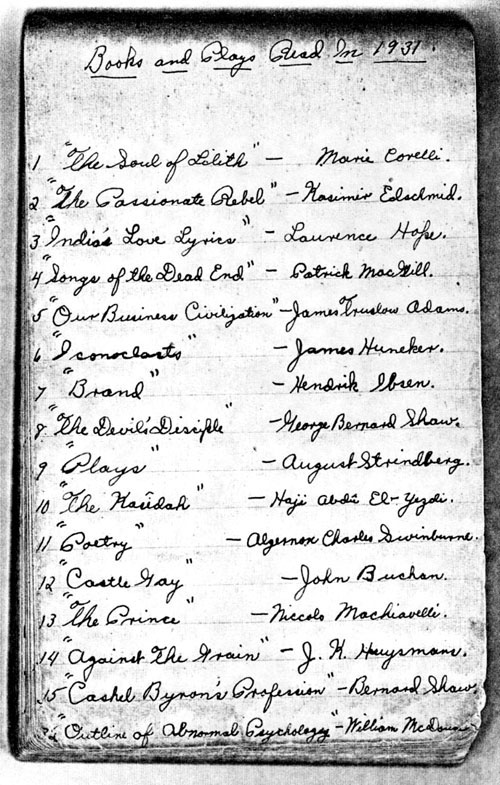 Books and Plays Read In 1931.
1 "The Soul of Lilith" — Marie Corelli.
2 "The Passionate Rebel" — Kasimir Edschmid.
3 "India's Love Lyrics" — Laurence Hope.
4 "Songs of the Dead End" — Patrick MacGill.
5 "Our Business Civilization" — James Truslow Adams.
6 "Iconoclasts" — James Huneker.
7 "Brand" — Hendrik Ibsen.
8 "The Devil's Disciple" — George Bernard Shaw.
9 "Plays" — August Strindberg.
10 "The Kasîdah" — Haji Abdû El-Yezdi.
11 "Poetry" — Algernon Charles Swinburne.
12 "Castle Gay" — John Buchan.
13 "The Prince" — Niccolo Machiavelli.
14 "Against The Grain" — J. K. Huysmans.
15 "Cashel Byron's Profession" — Bernard Shaw
"Outline of Abnormal Psychology" — William